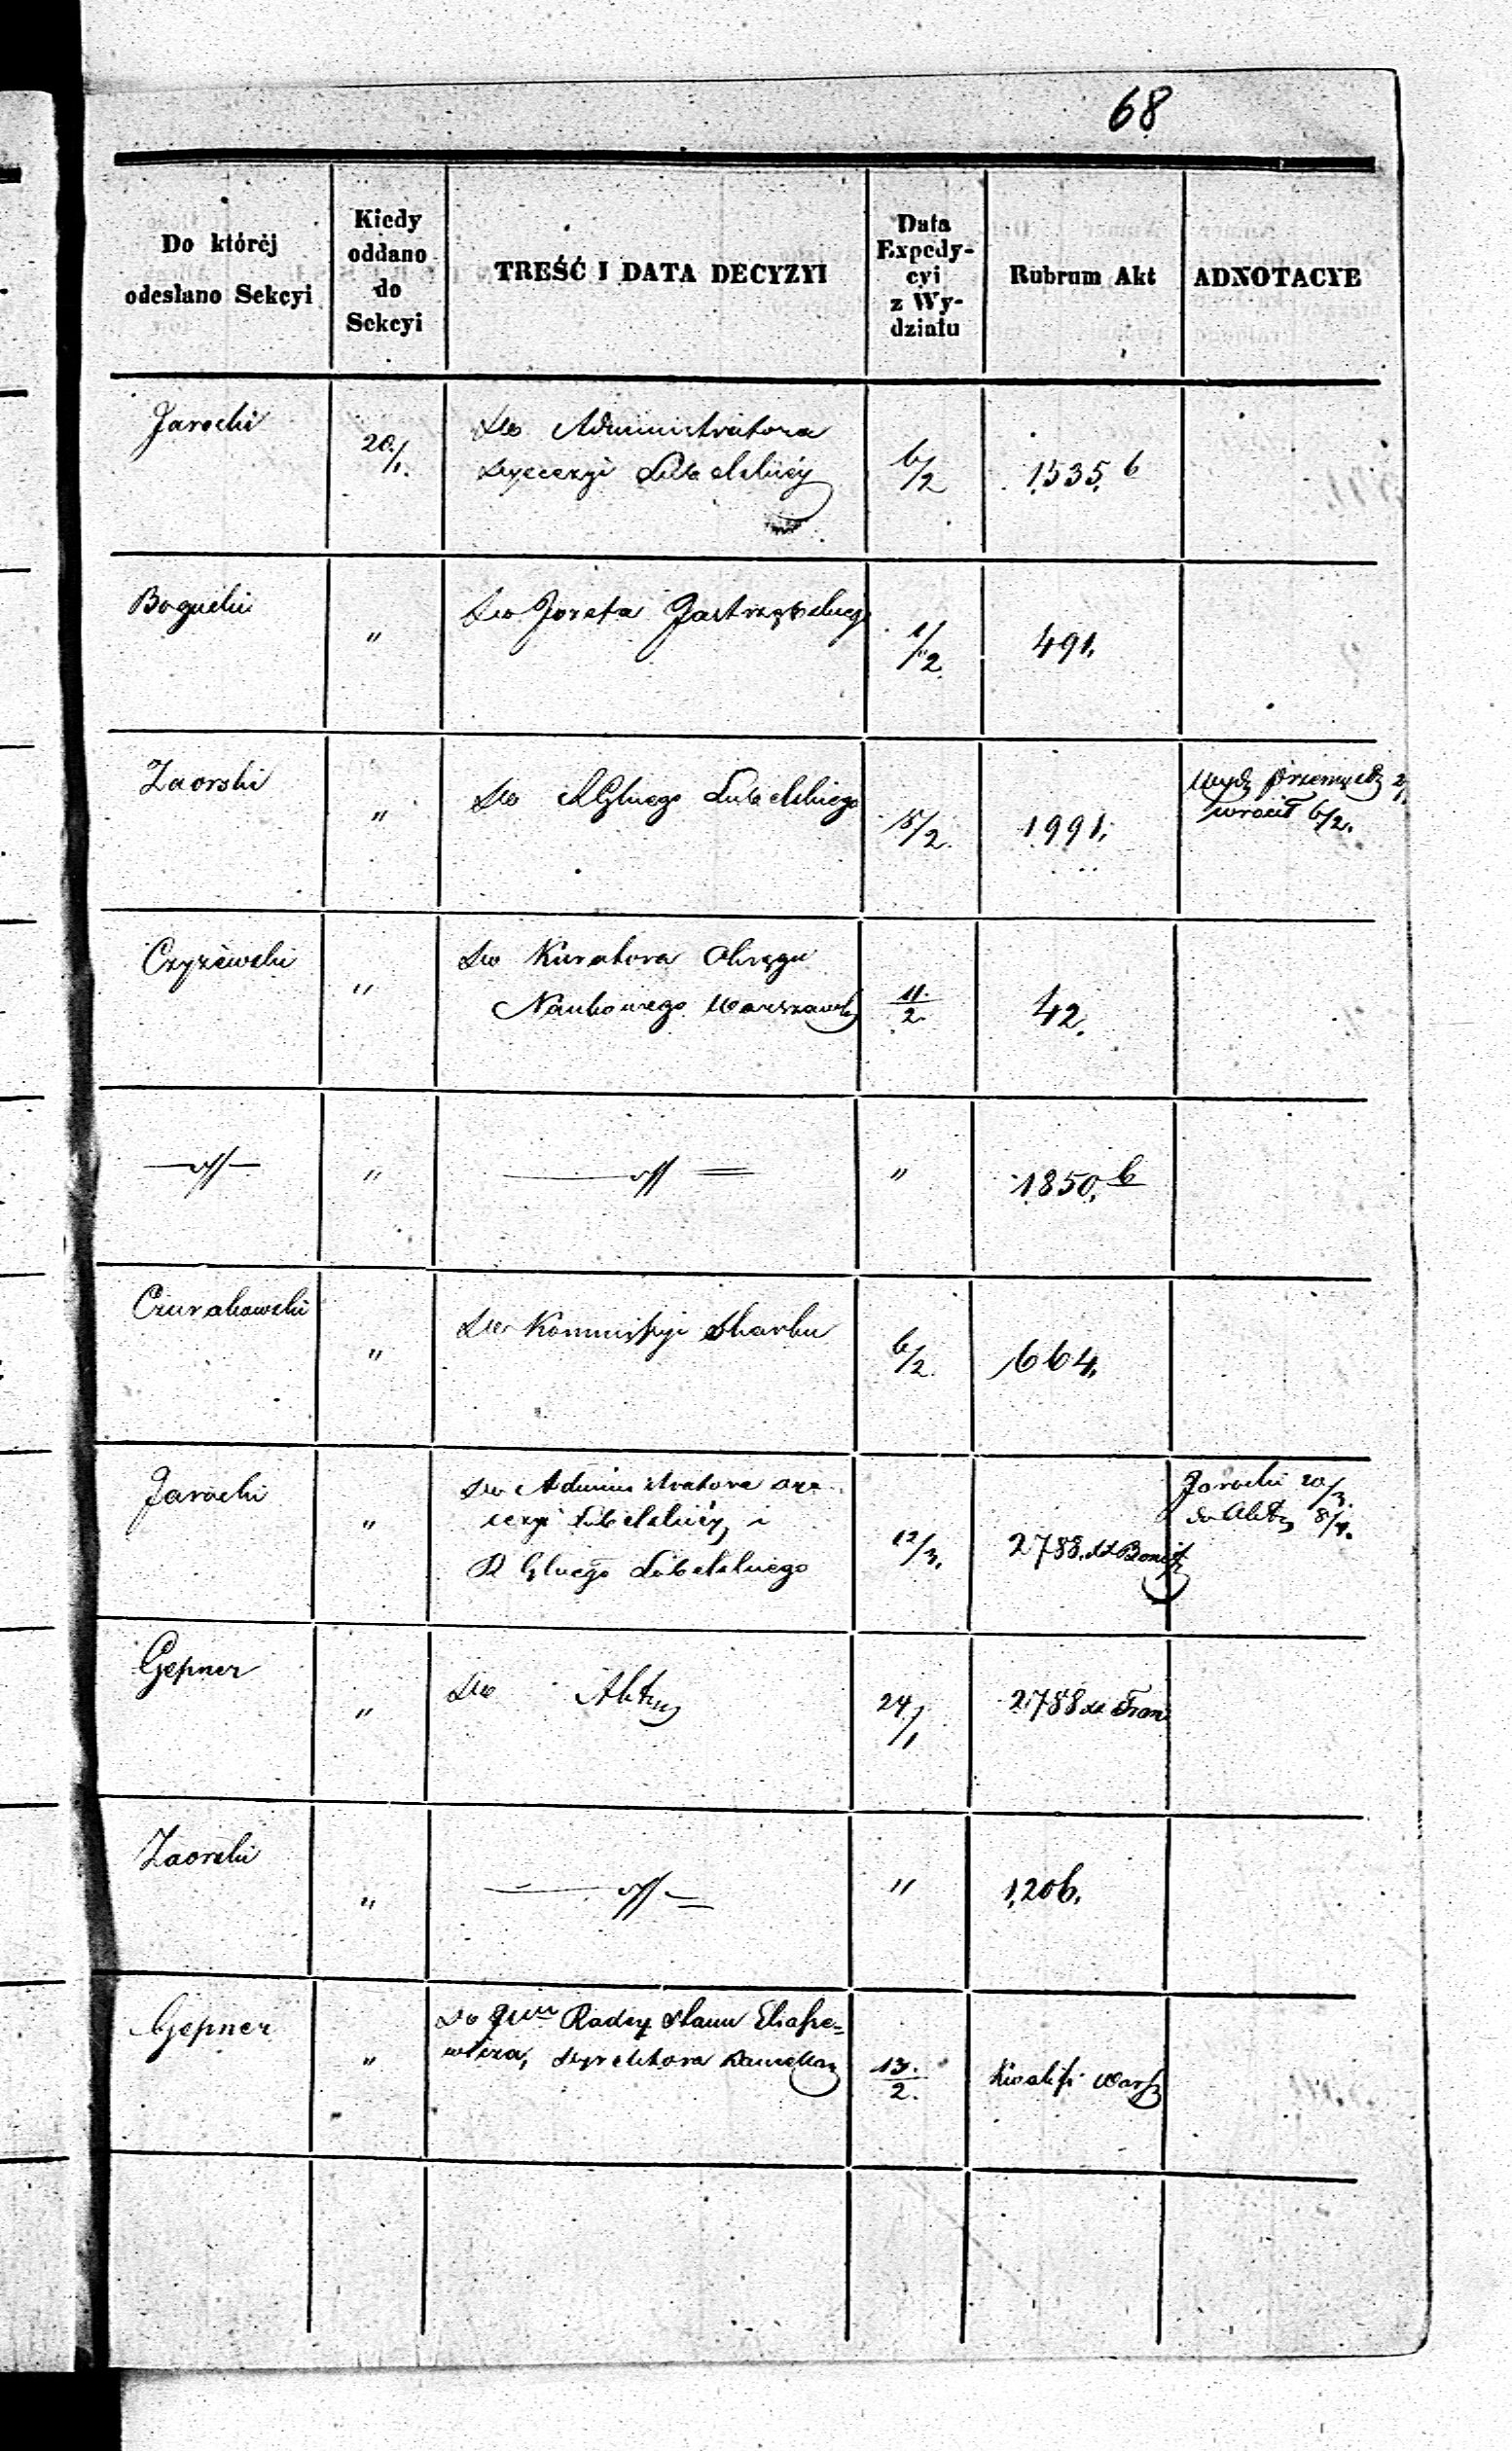 68
Do któréj odesłano Sekcyi
Kiedy oddano do Sekcyi
TREŚĆ I DATA DECYZYI
Data Expedycyi z Wydziału
Rubrum Akt
ADNOTACYE
Jarocki
20/1.
Do Administratora
Dyecezyi Lubelskiéj
6/2
1535. b
Bogucki
"
Do Jozefa Jastrzębskieg
1/2.
491.
Zaorski
"
Do RGlnego Lubelskiego
15/2.
1991.
wrócił 6/2.
Czyżewski
"
Do Kuratora Okręgu
Naukowego Warszaws
11./2.
42.
—//—
"
—//—
"
1850. b
Czurakowski
"
Do Kommissyi Skarbu
6/2.
664.
Jarocki
"
Do Administratora Dye
cezyi Lubelskiéj i
R Glnego Lubelskiego
12/3.
2788.
Jarocki 20/3.
do Akt 8/4.
Gepner
"
Do Akt
24/1
2788
Zaorski
"
—//—
"
1206.
Gepner
"
Do JWn Radcy Stanu Eliasze=
wicza, Dyrektora Kancellar
13./2.
Kwalifi Warsz